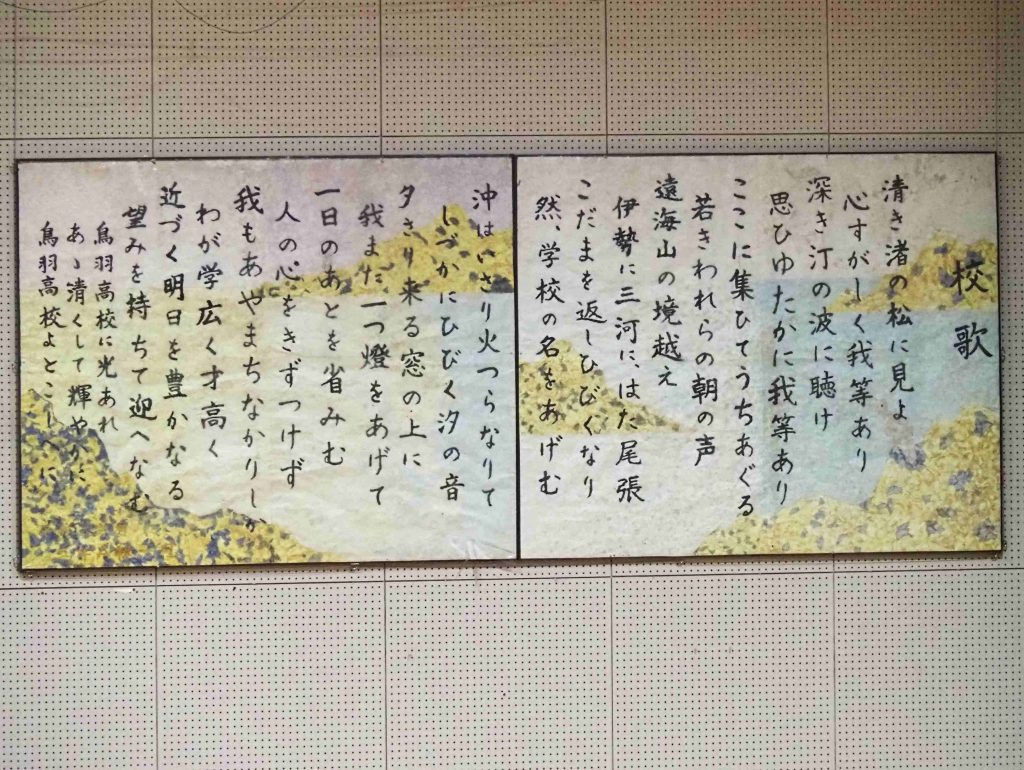 校歌
清き渚の松に見よ
心すがしく我等あり
深き汀の波に聴け
思ひゆたかに我等あり
ここに集ひてうちあぐる
若きわれらの朝の声
遠海山の境越え
伊勢に三河に、はた尾張
こだまを返しひびくなり
然、学校の名をあげむ
沖はいさり火つらなりて
しづかにひびく汐の音
夕さり来る窓の上に
我また一つ燈をあげて
一日のあとを省みむ
人の心をきずつけず
我もあやまちなかりしか
わが学広く才高く
近づく明日を豊かなる
望みを持ちて迎へなむ
鳥羽高校に光あれ
あゝ清くして輝やかに
鳥羽高校よとこしへに